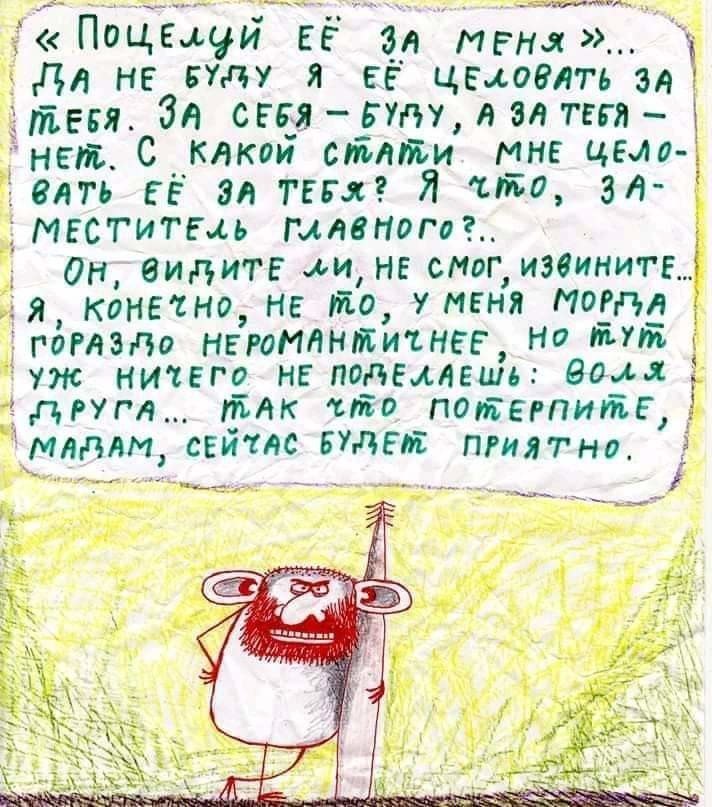 « Поцелуй её за меня »...
Да не буду я её целовать за
тебя. За себя – буду, а за тебя –
нет. С какой стати мне цело-
вать её за тебя? Я что, за-
меститель главного?..
Он, видите ли, не смог, извините...
я, конечно, не то, у меня морда
гораздо неромантичнее, но тут
уж ничего не поделаешь: воля
друга... так что потерпите,
мадам, сейчас будет приятно.